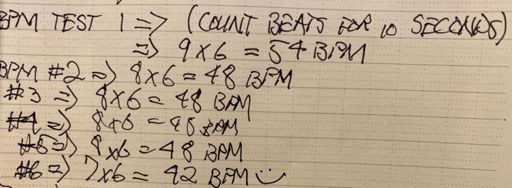 BPM TEST 1 => (COUNT BEATS FOR 10 SECONDS)
=> 9x6 = 54 BPM
BPM #2 => 8x6 = 48 BPM
#3 => 8x6 = 48 BPM
#4 => 8x6 = 48 BPM
#5 => 8x6 = 48 BPM
#6 => 7x6 = 42 BPM :)